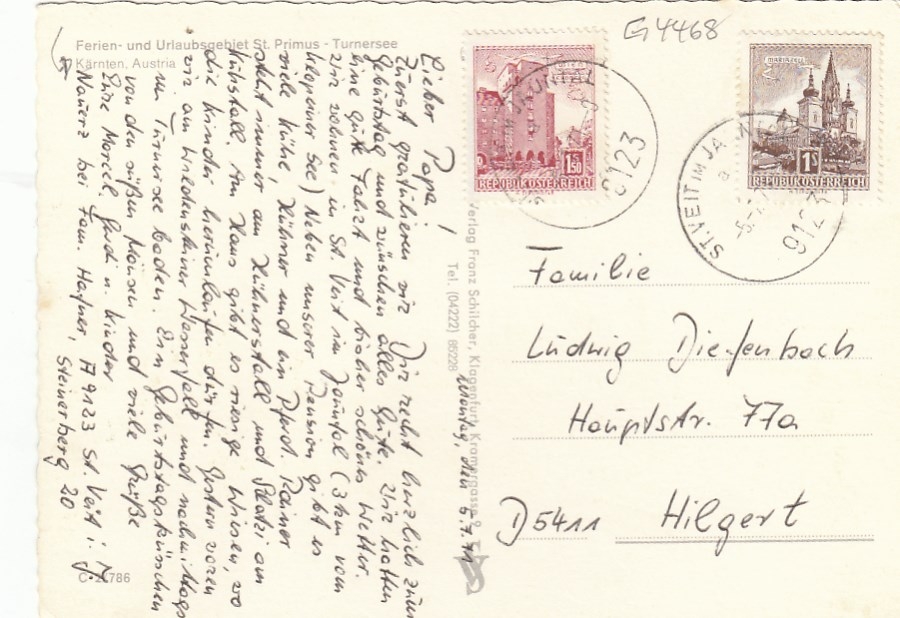 G4468
Ferien- und Urlaubsgebiet St. Primus - Turnersee
Kärnten, Austria
Lieber Papa!
Zuerst gratulieren wir Dir recht herzlich zum
Geburtstag und wünschen alles Gute. Wir hatten
eine gute Fahrt und bisher schönes Wetter.
Wir wohnen in St. Veit im Jauntal (3 km vom
Klopeiner See) Neben unserer Pension gibt es
viele Kühe, Hühner und ein Pferd. Rainer
steht immer am Hühnerstall und Stazi am
Kuhstall. Am Haus gibt es riesige Wiesen, wo
die Kinder herumlaufen dürfen. Gestern waren
wir am Wildensteiner Wasserfall und nachmittags
im Turnersee baden. Ein Geburtstagsküsschen
von den süßen Mäusen und viele Grüße
Eure Marcel, Gerd u. Kinder
bei Fam. Hafner, A 9123 St. Veit i. J
Steinerberg 20
C 21786
Verlag Franz Schilcher, Klagenfurt, Kramergasse 9
Tel. (04222) 85228
Montag, den 5.7.71
WIEN
1.50
S
REPUBLIK ÖSTERREICH
MARIAZELL
1S
REPUBLIK ÖSTERREICH
JAUNTAL
9123
ST. VEIT IM JA
a
9123
Familie
Ludwig Diefenbach
Hauptstr. 77a
D5411 Hilgert